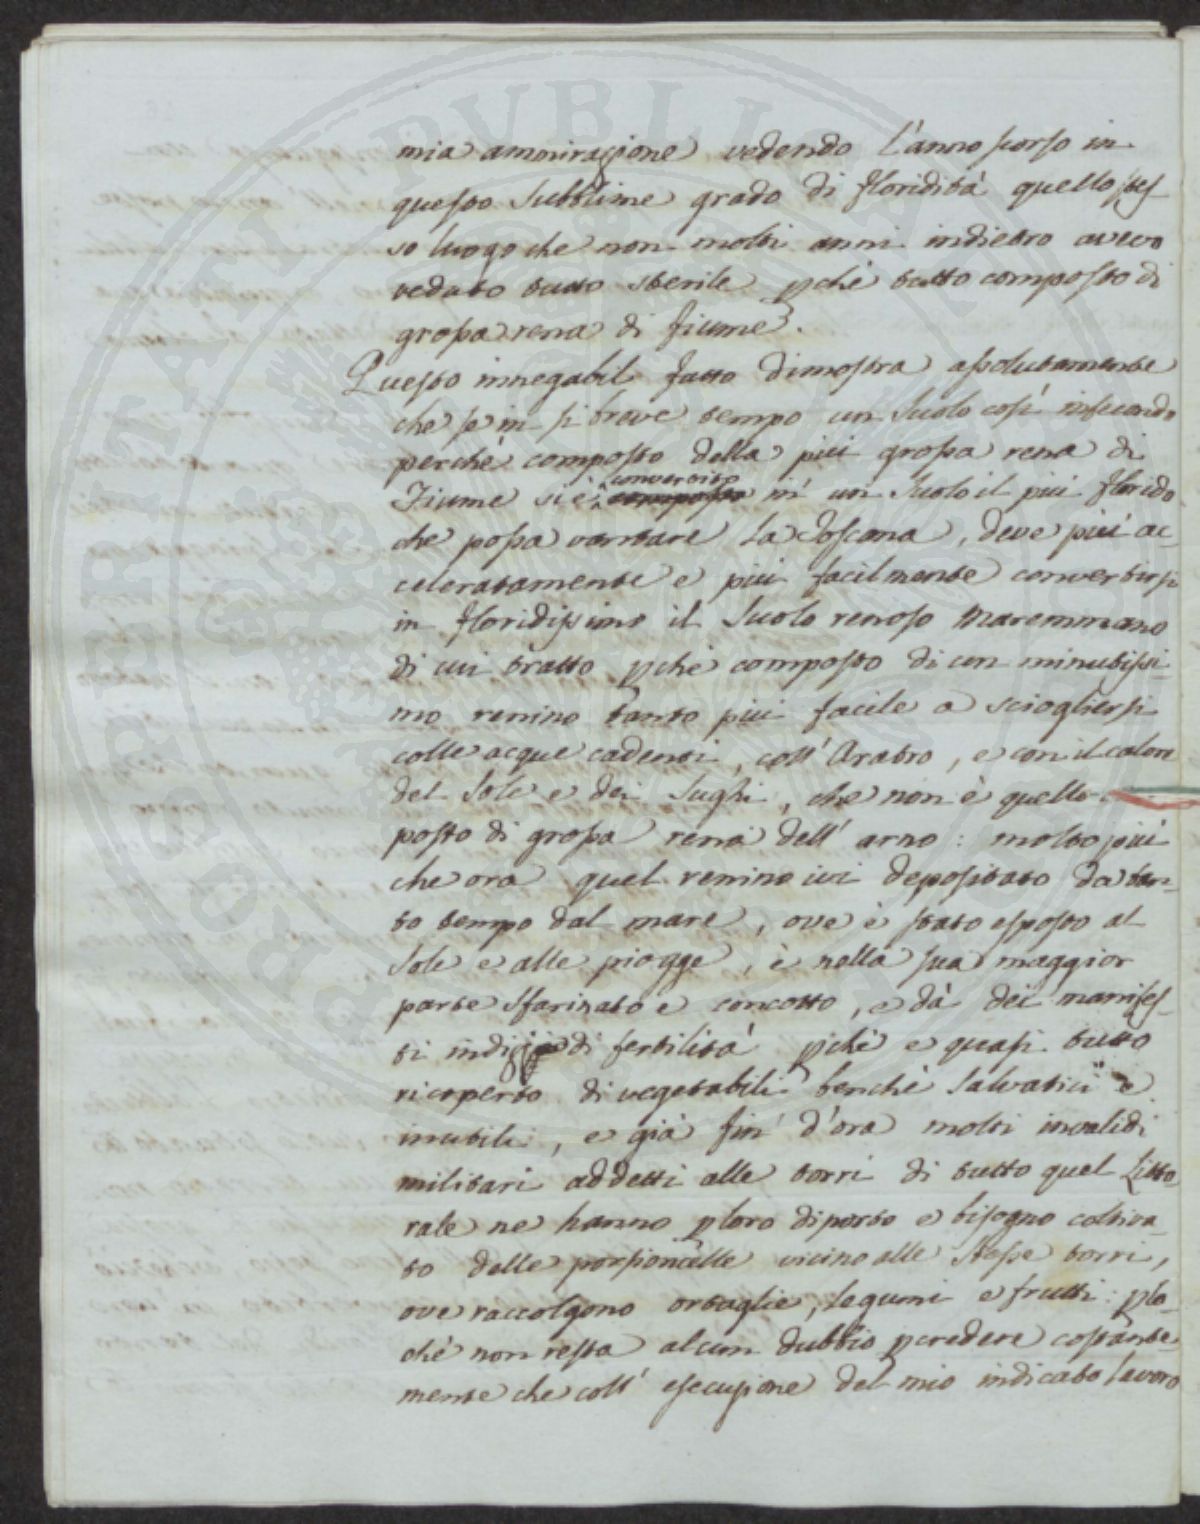 mia amonirazione vedendo l'anno scorso in
questo Subblime grado di floridità quello stes-
so luogo che non molti anni indietro avevo
veduto tutto sterile pchè tutto composto di
grossa rena di fiume.
Questo innegabil fatto dimostra assolutamente
che se in si breve tempo un Suolo così infecondo
perchè composto della più grossa rena di
Fiume si è convertito in un Suolo il più florido
che possa vantare la Toscana, deve più ac-
celeratamente e più facilmente convertirsi
in floridissimo il Suolo renoso Maremmano
di cui tratto pchè composto di un minutissi-
mo renino tanto più facile a sciogliersi
colle acque cadenti, coll' Aratro, e con il calore
del Sole e dei Sughi, che non è quello
posto di grossa rena dell' arno: molto più
che ora quel renino ivi depositato da tan-
to tempo dal mare, ove è stato esposto al
Sole e alle piogge, è nella sua maggior
parte Sfarinato e concotto, e dà dei manifes-
ti indizi di fertilità pchè e quasi tutto
ricoperto di vegetabili benchè Salvatici e
inutili, e già fin' d'ora molti invalidi
militari addetti alle torri di tutto quel Litto-
rale ne hanno p loro diporto e bisogno coltiva-
to delle porzioncelle vicino alle Stesse torri,
ove raccolgono ortaglie, legumi e frutti: plo-
chè non resta alcun dubbio p credere costante-
mente che coll' esecuzione del mio indicato lavoro
PROSPERITATI PUBLICAE